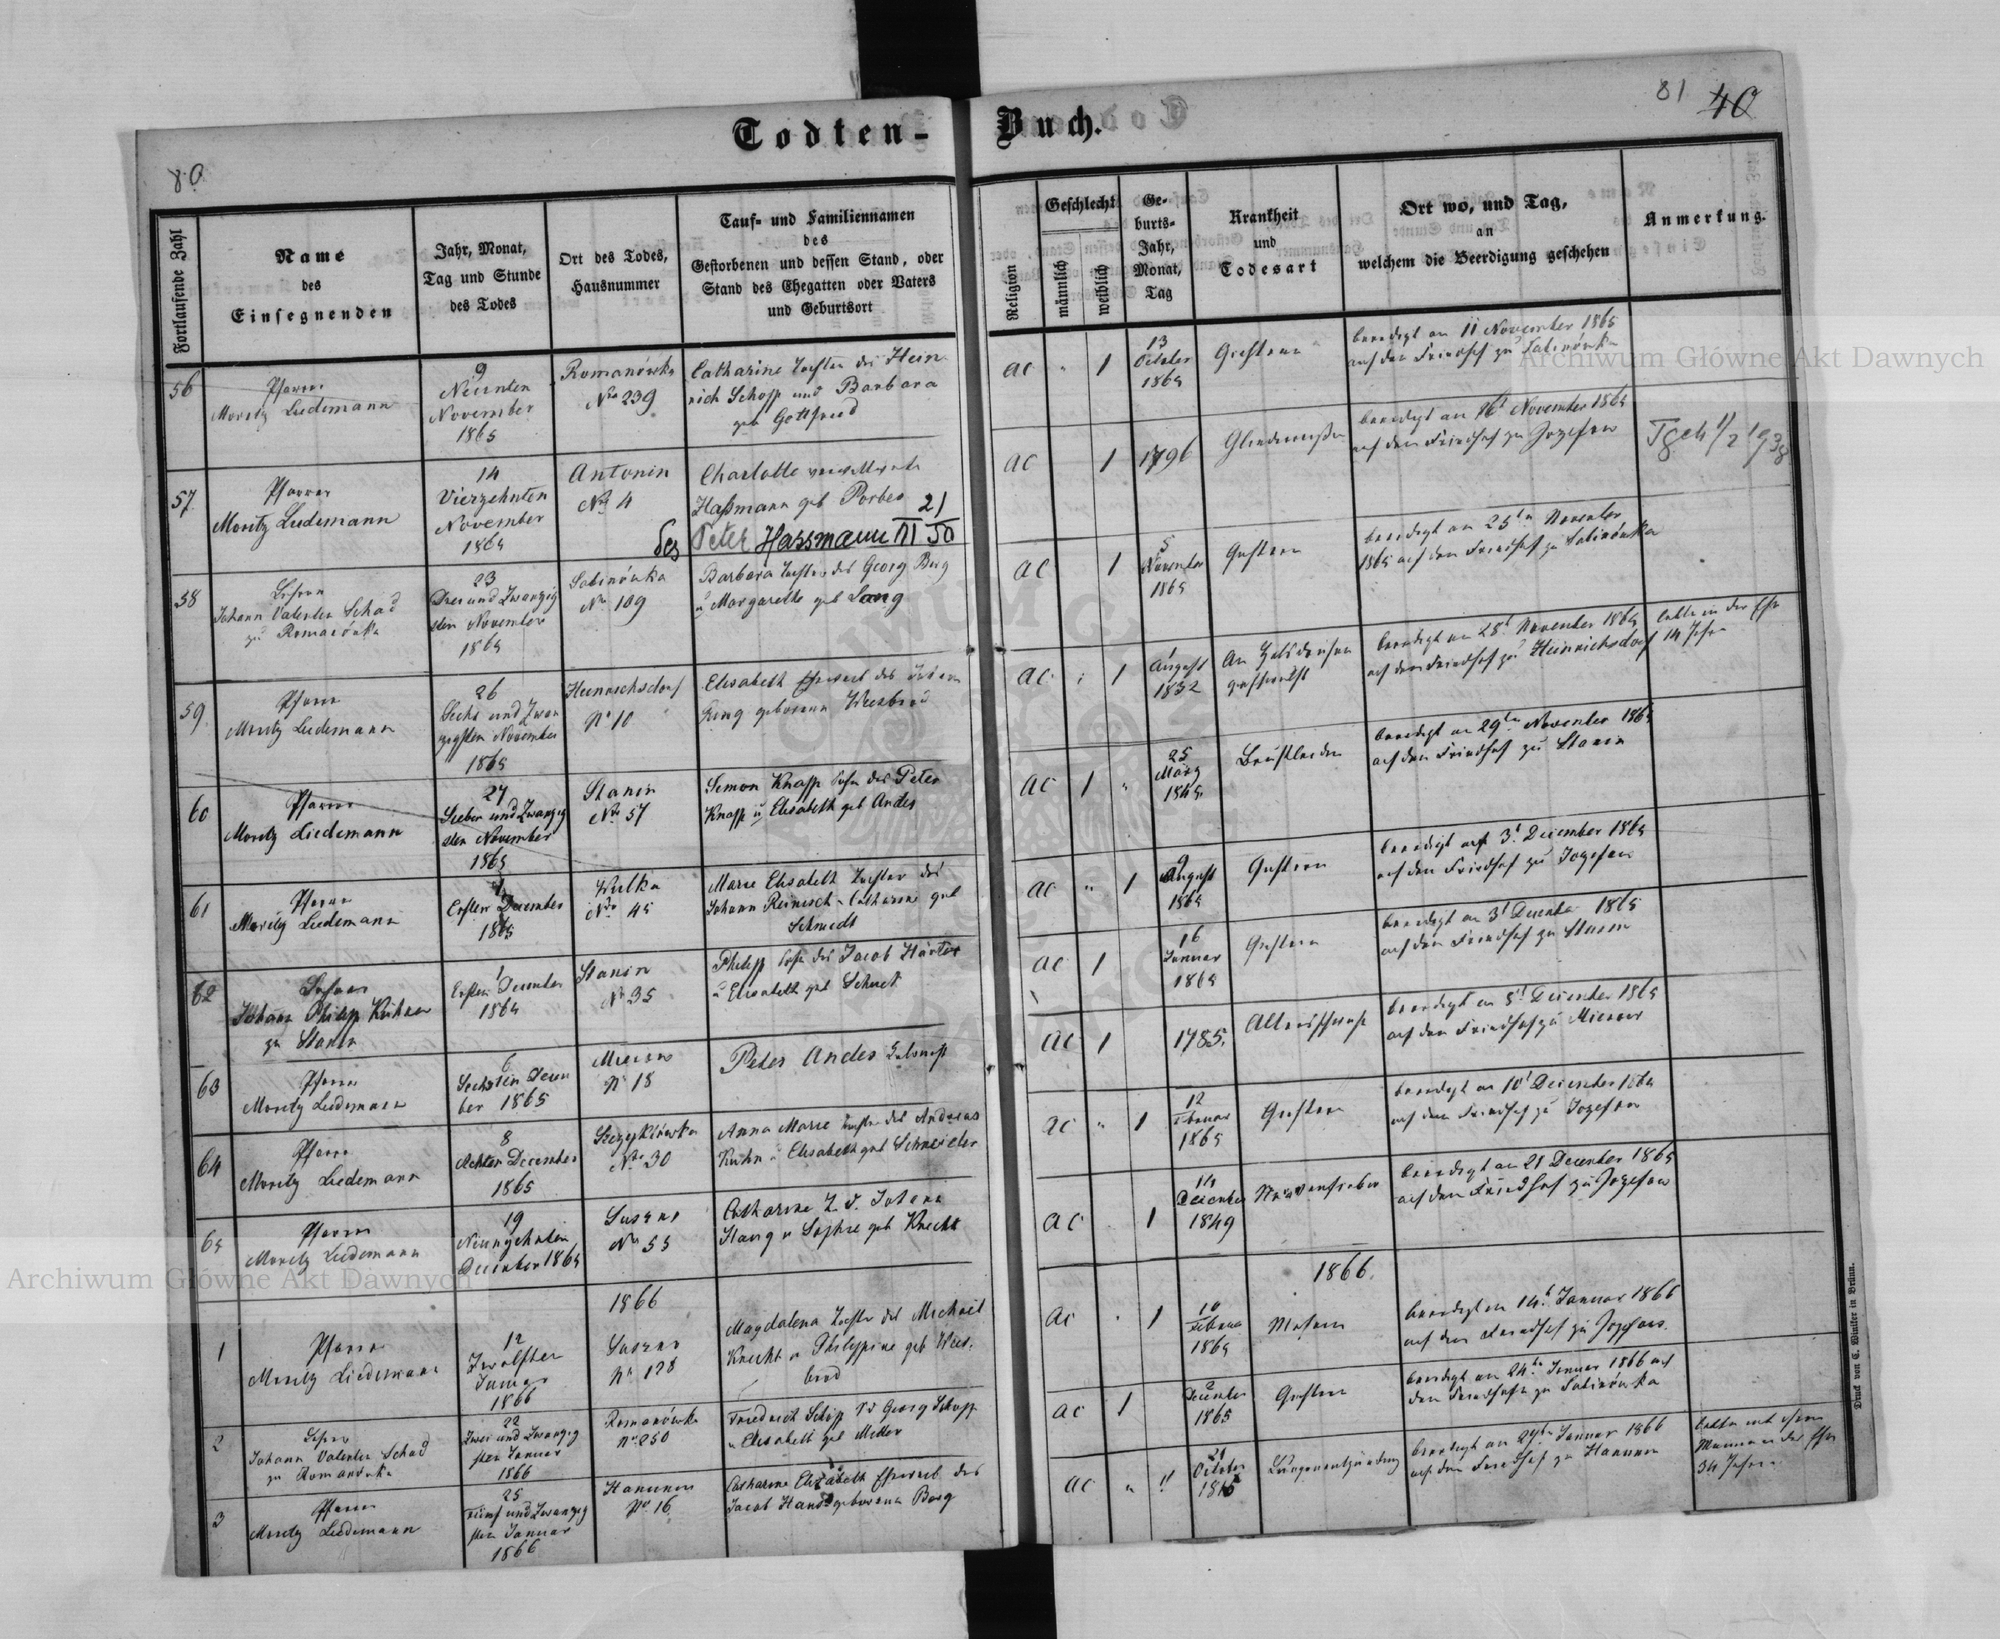 Todten-Buch.
80
81
40
Fortlaufende Zahl
Name
des
Einsegnenden
Jahr, Monat,
Tag und Stunde
des Todes
Ort des Todes,
Hausnummer
Tauf- und Familiennamen
des
Gestorbenen und dessen Stand, oder
Stand des Ehegatten oder Vaters
und Geburtsort
Religion
Geschlecht
männlich
weiblich
Ge-
burts-
Jahr,
Monat,
Tag
Krankheit
und
Todesart
Ort wo, und Tag,
an
welchem die Beerdigung geschehen
Anmerkung.
56
Pfarrer
Moritz Liedemann
9
Neunten
November
1865
Romanówka
No 239
Catharine Tochter des Hein
rich Schopp und Barbara
geb Gottfried
ac
1
13
October
1865
beerdigt am 11 November 1865
auf dem Friedhof zu Sabinówka
57.
Pfarrer
Moritz Liedemann
14
Vierzehnten
November
1865
Antonin
No 4
Charlotte
Haßmann geb
des Peter Hassmann III 21/50
ac
1
1796
beerdigt am 16t November 1865
auf dem Friedhof zu Jozefow
58
Lehrer
Johann Valentin Schad
zu Romanówka
23
Drei und Zwanzig
sten November
1865
Sabinówka
No 109
Barbara Tochter des Georg Berg
u Margarethe geb Lang
ac
1
5
November
1865
beerdigt am 25ten November
1865 auf dem Friedhof zu Sabinówka
59.
Pfarrer
Moritz Liedemann
26
Sechs und Zwan
zigsten November
1865
Heinrichsdorf
No 10
Elisabeth Eheweib des Johann
geborene Wiesbrod
ac
1
August
1832
An
beerdigt am 28t November 1865
auf dem Friedhof zu Heinrichsdorf
lebte in der Ehe
14 Jahre
60
Pfarrer
Moritz Liedemann
27
Sieben und Zwanzig
sten November
1865
Stanin
No 57
Simon Knapp Sohn des Peter
Knapp u Elisabeth geb Andes
ac
1
25
März
1845
Brustleiden
beerdigt am 29ten November 1865
auf dem Friedhof zu Stanin
61
Pfarrer
Moritz Liedemann
1
Ersten December
1865
Wulka
No 45
Marie Elisabeth Tochter des
Johann Reinisch u Catharine geb
Schmidt
ac
1
9
August
1865
beerdigt am 3t December 1865
auf dem Friedhof zu Jozefow
62
Lehrer
Johann Philipp Kühner
zu Stanin
1
Ersten December
1865
Stanin
No 35
Philipp Sohn des Jacob Harter
u Elisabeth geb
ac
1
16
Januar
1865
beerdigt am 3t December 1865
auf dem Friedhof zu Stanin
63
Pfarrer
Moritz Liedemann
6
Sechsten Decem
ber 1865
Mierow
No 18
Peter Andes
ac
1
1785.
Altersschwäche
beerdigt am 8t December 1865
auf dem Friedhof zu Mierow
64
Pfarrer
Moritz Liedemann
8
Achten December
1865
No 30
Anna Marie Tochter des Andreas
Kuhn u Elisabeth geb Schneider
ac
1
12
Februar
1865
beerdigt am 10t December 1865
auf dem Friedhof zu Jozefow
65
Pfarrer
Moritz Liedemann
19
Neunzehnten
December 1865
Suszno
No 55
Catharine T. d. Johann
Stang u Sophie geb Knecht
ac
1
14
December
1849
Nervenfieber
beerdigt am 21 December 1865
auf dem Friedhof zu Jozefow
1866
1866.
1
Pfarrer
Moritz Liedemann
12
Zwölften
Januar
1866
Suszno
No 178
Magdalena Tochter des Michael
Knecht u Philippine geb Wies-
brod
ac
1
10
Februar
1865
Masern
beerdigt am 14t Januar 1866
auf dem Friedhof zu Jozefow.
2
Lehrer
Johann Valentin Schad
zu Romanówka
22
Zwei und Zwanzig
sten Januar
1866
Romanówka
No 250
Friedrich Schopp S d Georg Schopp
u Elisabeth geb Müller
ac
1
December
1865
beerdigt am 24ten Januar 1866 auf
dem Friedhofe zu Sabinówka
3
Pfarrer
Moritz Liedemann
25
Fünf und Zwanzig
sten Januar
1866
Hanunin
No 16
Catharine Elisabeth Eheweib des
Jacob geborene Berg
ac
October
Lungenentzündung
beerdigt am 27ten Januar 1866
auf dem Friedhof zu Hanunin
lebte mit ihrem
Manne in der Ehe
34 Jahre
Druck von C. Winiker in Brünn.
Archiwum Główne Akt Dawnych
Archiwum Główne Akt Dawnych